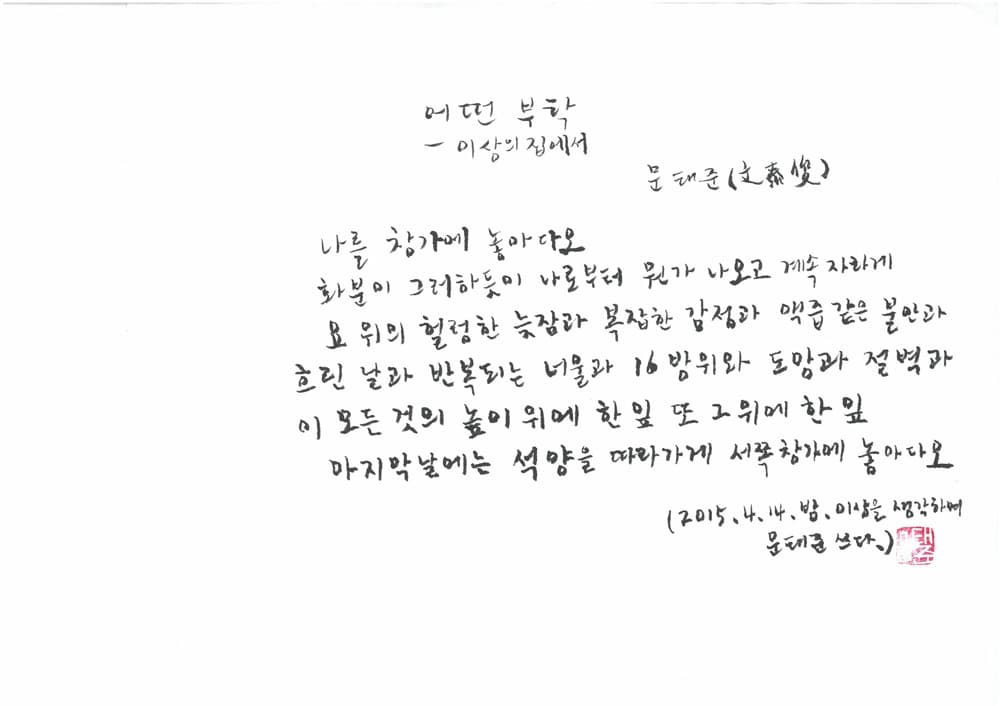 어떤 부탁
- 이상의 집에서
문태준(文泰俊)
나를 창가에 놓아다오
화분이 그러하듯이 나로부터 뭔가 나오고 계속 자라게
요 위의 헐렁한 늦잠과 복잡한 감정과 맥즙 같은 불안과
흐린 날과 반복되는 너울과 16방위와 도망과 절벽과
이 모든 것의 높이 위에 한 잎 또 그 위에 한 잎
마지막 날에는 석양을 따라가게 서쪽 창가에 놓아다오
(2015. 4. 14. 밤. 이상을 생각하며
문태준 쓰다.)